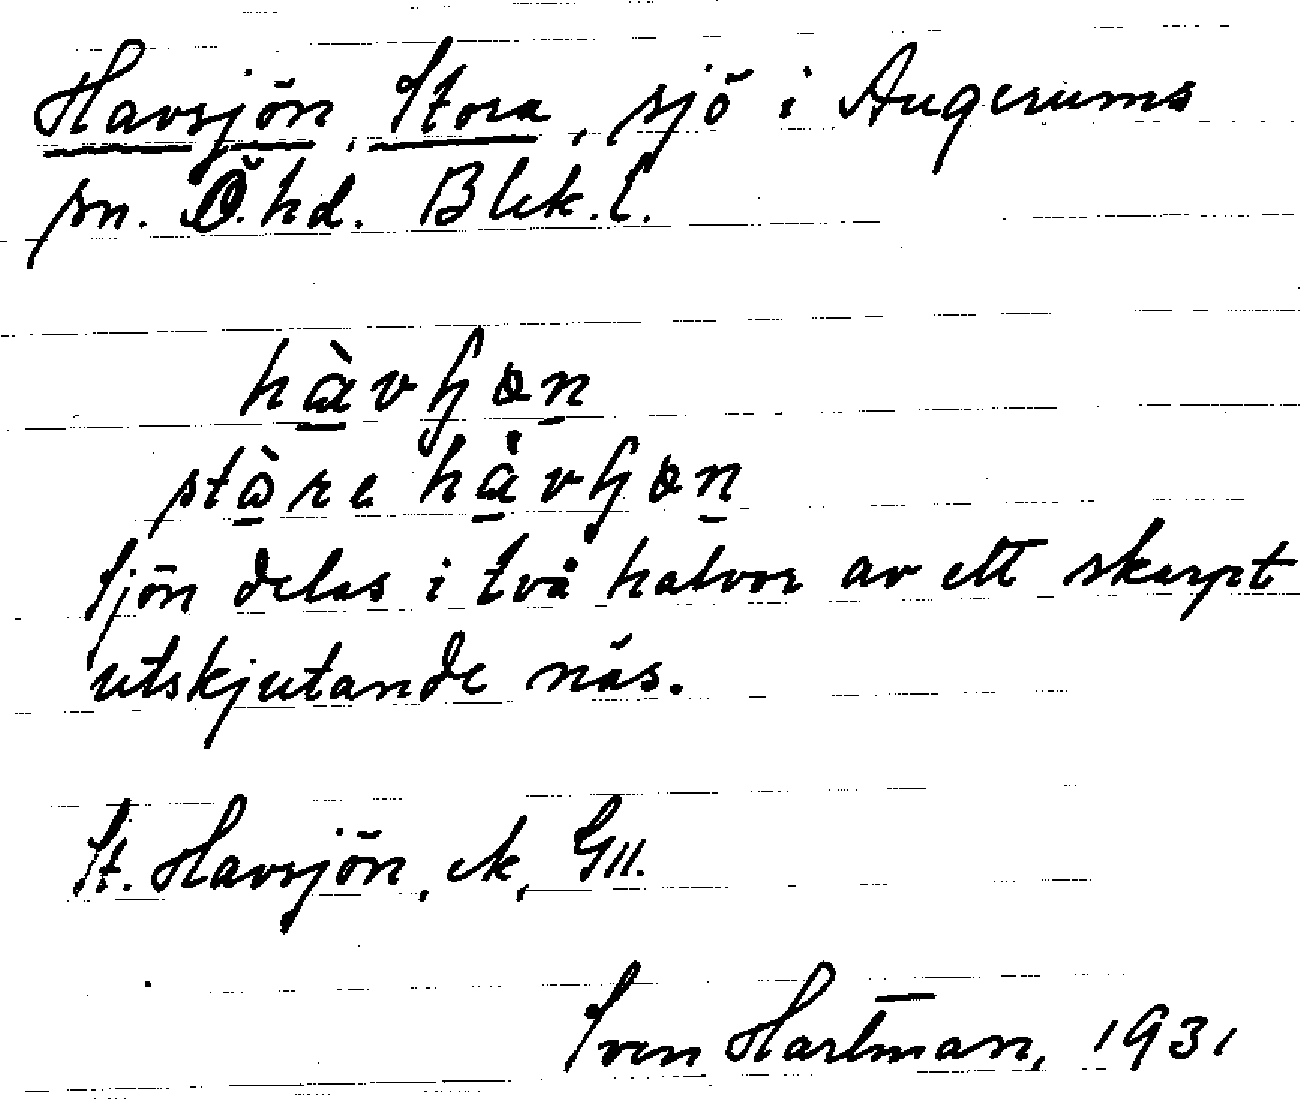 Havsjön, Stora, sjö i Augerums
sn. Ö. hd. Blek. l.
hàvʃơn
stòre hàvʃơn
Sjön delas i två halvor av ett skarpt
utskjutande näs.
St. Havsjön, ek, GII.
Sven Hartman, 1931